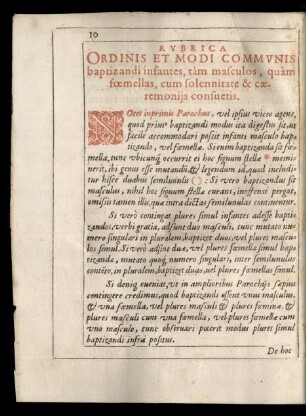 10
RVBRICA
ORDINIS ET MODI COMMVNIS
baptizandi infantes, tàm masculos, quàm
fœmellas, cum solennitate & cæ-
remonijs consuetis.
NOtet inprimis Parochus, vel ipsius vices agens,
quod primꝰ baptizandi modus ita digestus sit, ut
facilè accommodari possit infanti masculo bap-
tizando, vel fœmellæ. Si enim baptizanda sit fœ-
mella, tunc vbicunq; occurrit ei hæc figura stellæ * memi-
nerit, ibi genus esse mutandū, & legendum id, quod includi-
tur hisce duabus semilunulis ( ): Si verò baptizandus sit
masculus, nihil hoc signum stellæ curans, inoffense pergat,
omissis tamen illis, quæ intra dictas semilunulas continentur.
Si verò contingat plures simul infantes adesse bapti-
zandos, verbi gratia, adsint duo masculi, tunc mutato nu-
mero singulari in pluralem, baptizet duos, vel plures mascu-
los simul. Si verò adsint duæ, vel plures fœmellæ simul bapti-
zandæ, mutato quoq; numero singulari, inter semilunulas
contēto, in pluralem, baptizet duas, uel plures fœmellas simul.
Si deniq; eueniat, vt in amplioribus Parochijs sæpius
contingere credimus, quod baptizandi essent vnus masculus,
& vna fœmella, vel plures masculi & plures fœminæ. &
plures masculi cum vna fœmella, vel plures fœmellæ cum
vno masculo, tunc obseruari poterit modus plures simul
baptizandi infrà positus.
De hoc